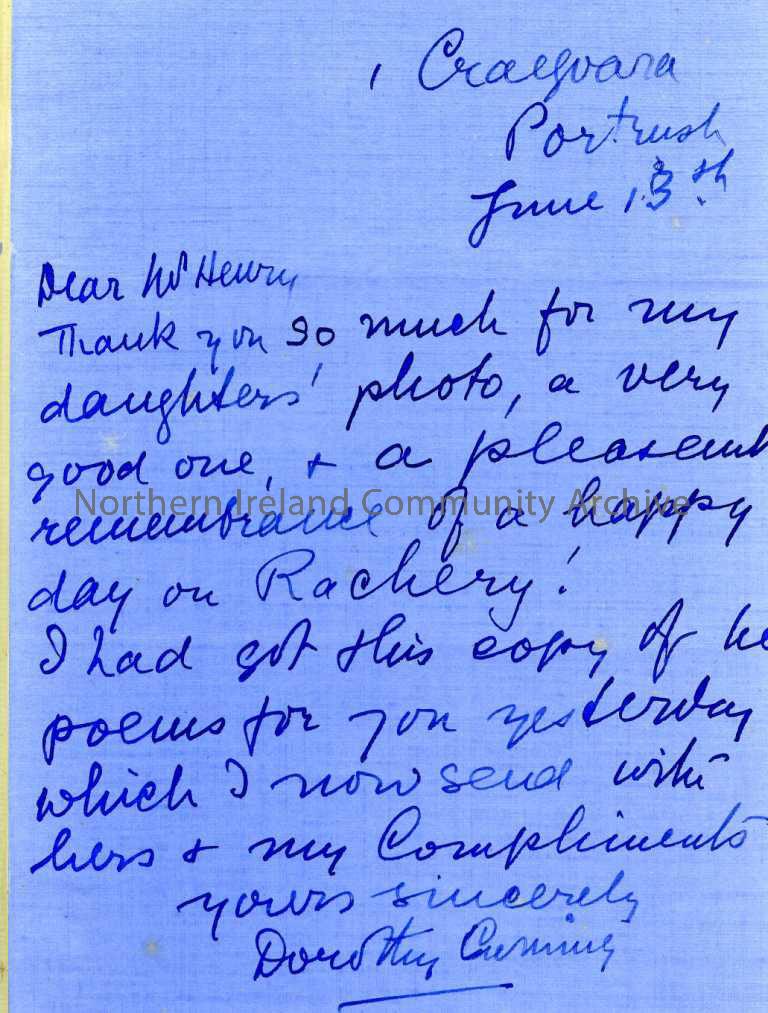 1 Craigvara
Portrush
June 13th
Dear McHenry
Thank you so much for my
daughters' photo, a very
good one, & a pleasant
Northern Ireland Community Archive
remembrance of a happy
day on Rachery!
I had got this copy of he
poems for you yesterday
which I now send with
hers & my Compliments
yours sincerely
Dorothy